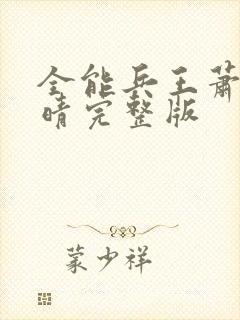 全能兵王萧
晴完整版
蒙少祥